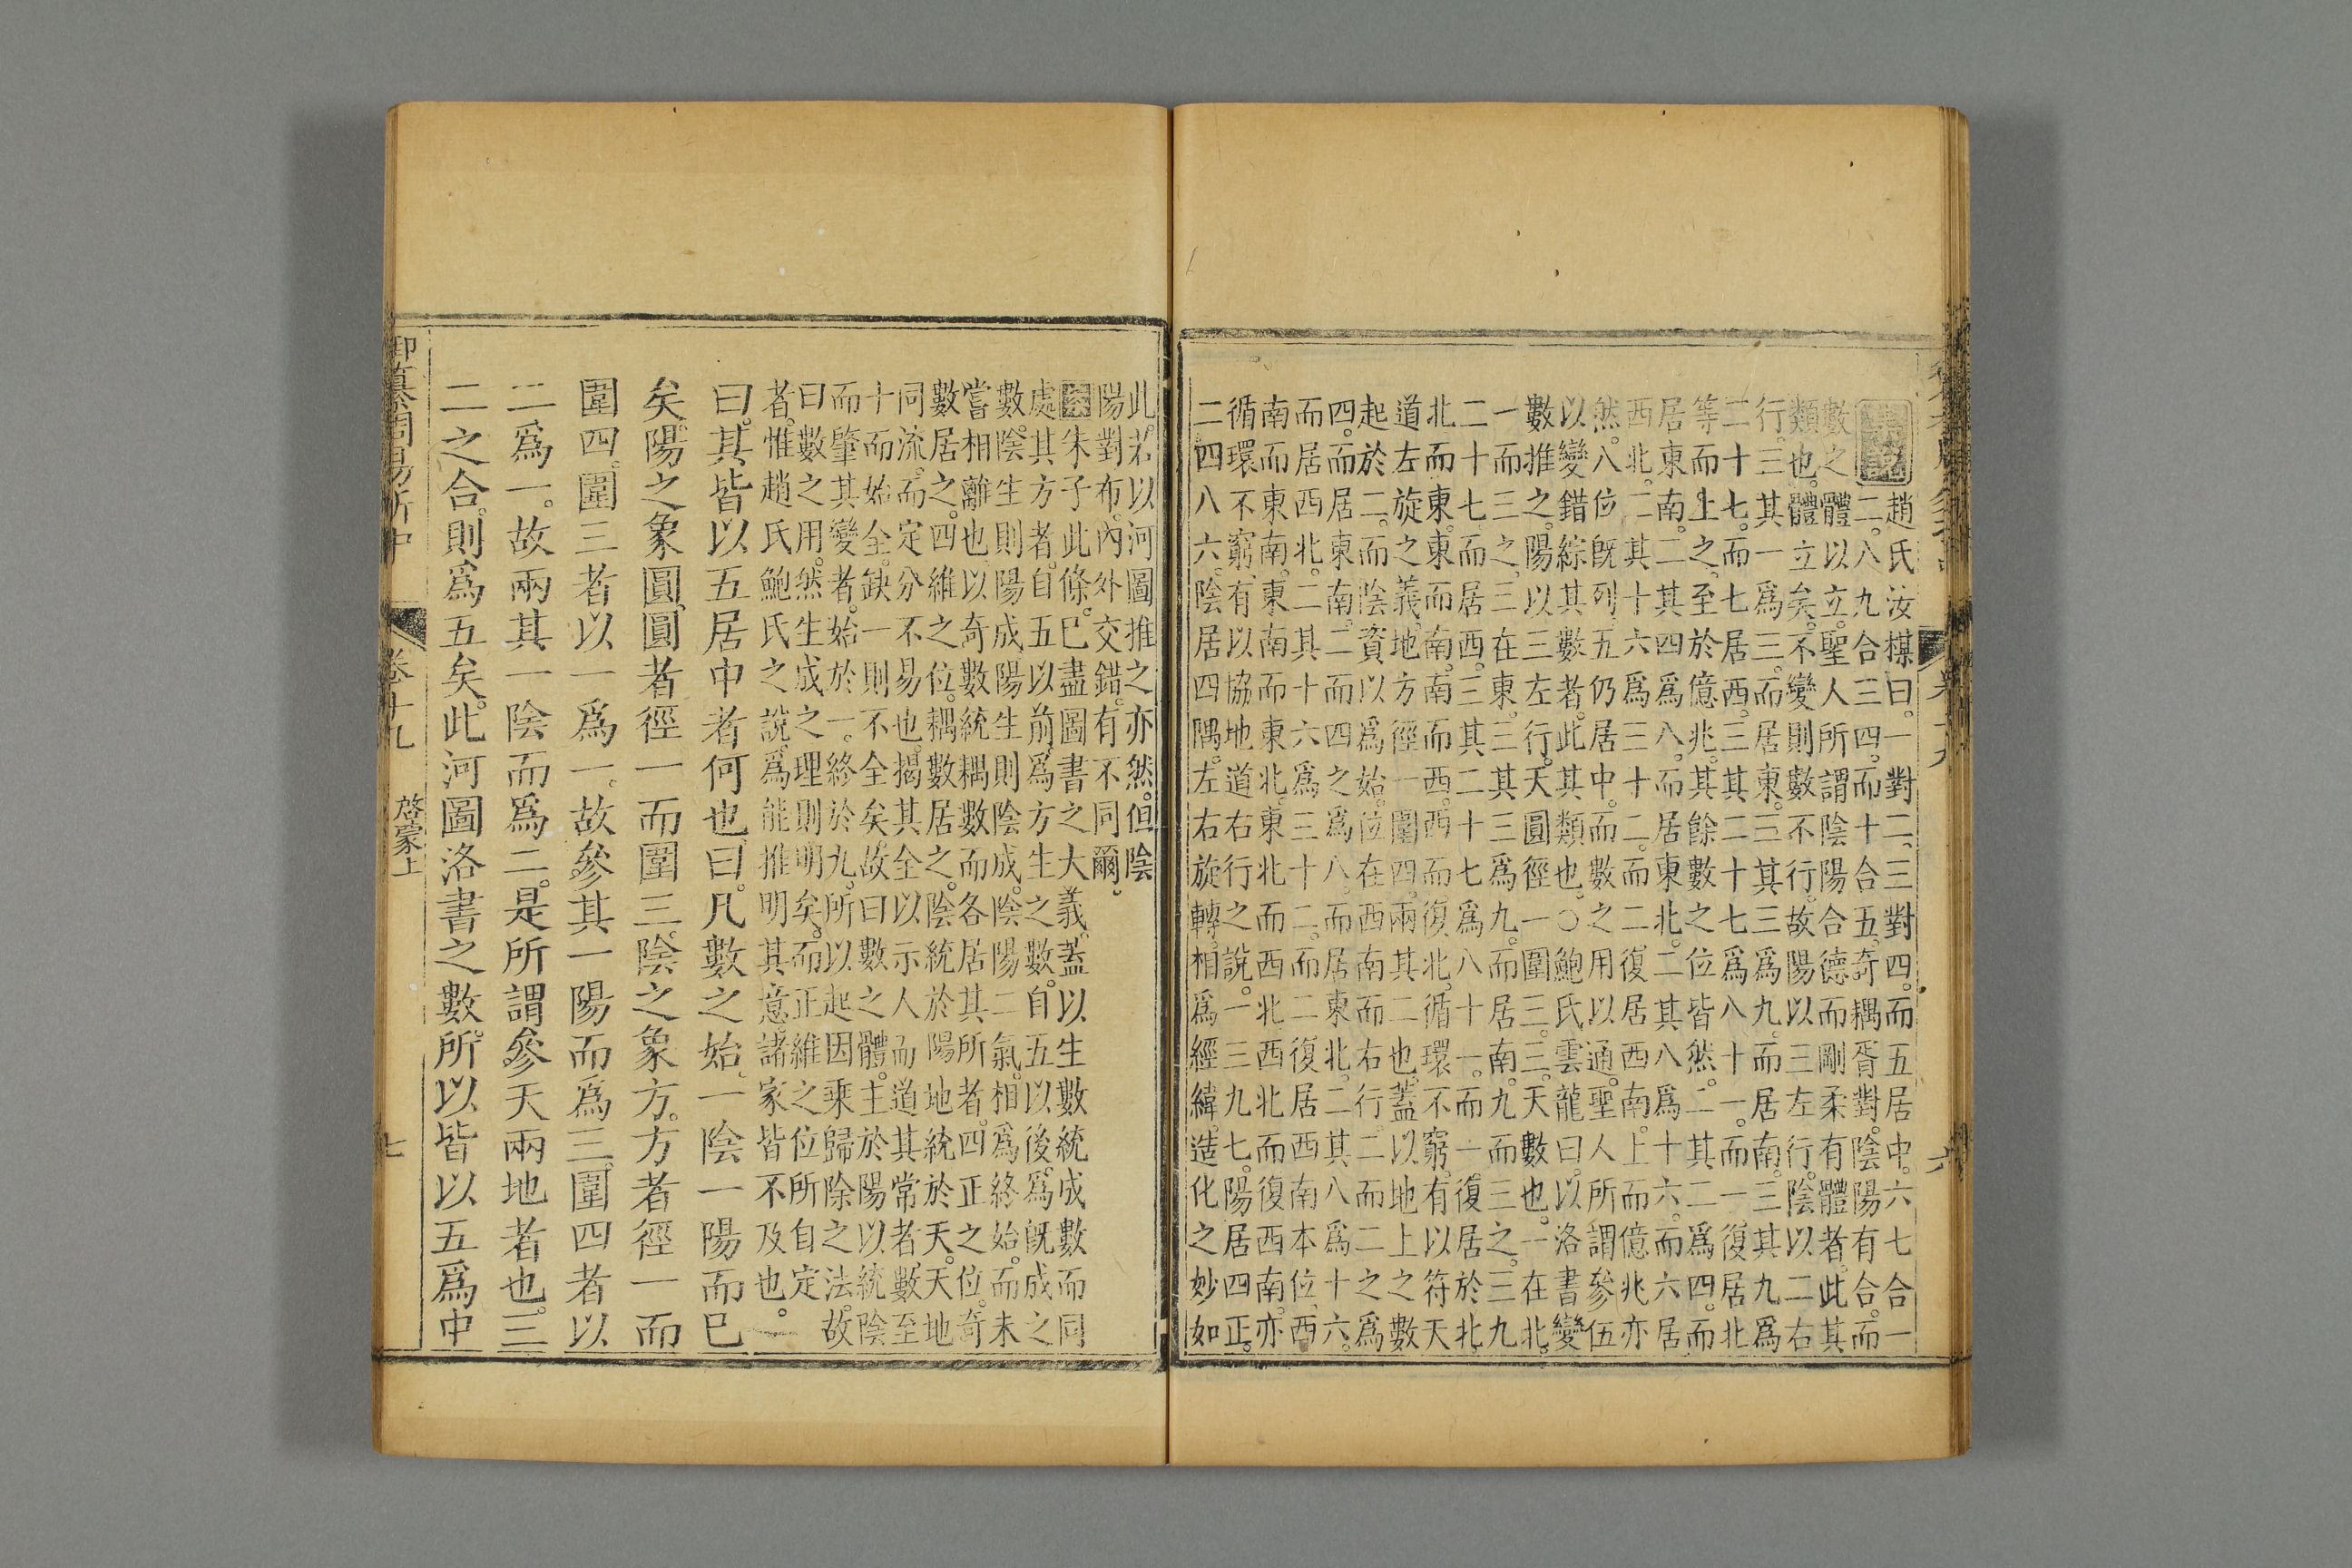 集說趙氏汝楳曰。一對二、三對四。而五居中。六七合一
二。八九合三四。而十合五。奇耦胥對。陰陽有合。而
數之體以立。聖人所謂陰陽合德而剛柔有體者。此其
類也。體立矣。不變則數不行。故陽以三左行。陰以二右
行。三其一爲三。而居東。三其三爲九。而居南。三其九爲
二十七。而七居西。三其二十七爲八十一。而一復居北。
等而上之。至於億兆。其餘數之位皆然。二其二爲四。而
居東南。二其四爲八。而居東北。二其八爲十六。而六居
西北。二其十六爲三十二。而二復居西南。上而億兆亦
然。八位既列。五仍居中。而數之用以通。聖人所謂參伍
以變錯綜其數者。此其類也。○鮑氏雲龍曰。以洛書變
數推之。陽以三左行。天圓徑一圍三。三。天數也。一在北。
一而三之。三在東。三其三爲九。而居南。九而三之。三九
二十七而居西。三其二十七爲八十一。而一復居於北。
北而東。東而南。南而西。西而復北。循環不窮。有以符天
道左旋之義。地方徑一圍四。兩其二也。蓋以地上之數
起於二。而陰資以爲始。位在西南而右行。二而二之爲
四。而居東南。二而四之爲八。而居東北。二其八爲十六。
而居西北。二其十六爲三十二。而二復居西南本位。西
南而東南。東南而東北。東北而西北。西北而復西南。亦
循環不窮。有以協地道右行之說。一三九七。陽居四正。
二四八六。陰居四隅。左右旋轉。相爲經緯。造化之妙如
六
此。若以河圖推之亦然。但陰
陽對布。內外交錯。有不同爾。
案朱子此條。已盡圖書之大義。蓋以生數統成數而同
處其方者。自五以前。爲方生之數。自五以後。爲既成之
數。陰生則陽成。陽生則陰成。陰陽二氣。相爲終始。而未
嘗相離也。以奇數統耦數而各居其所者。四正之位。奇
數居之。四維之位。耦數居之。陰統於陽。地統於天。天地
同流。而定分不易也。揭其全以示人而道其常者。數至
十而始全。缺一則不全矣。故曰數之體。主於陽以統陰
而肇其變者。始於一。終於九。所以起因乘歸除之法。故
曰數之用。然生成之理則明矣。而正維之位所自定
者。惟趙氏鮑氏之說。爲能推明其意。諸家皆不及也。
曰。其皆以五居中者何也。曰。凡數之始。一陰一陽而已
矣。陽之象圓。圓者徑一而圍三。陰之象方。方者徑一而
圍四。圍三者以一爲一。故參其一陽而爲三。圍四者以
二爲一。故兩其一陰而爲二。是所謂參天兩地者也。三
二之合。則爲五矣。此河圖洛書之數。所以皆以五爲中
御纂周易折中 卷十九 啓蒙上 七